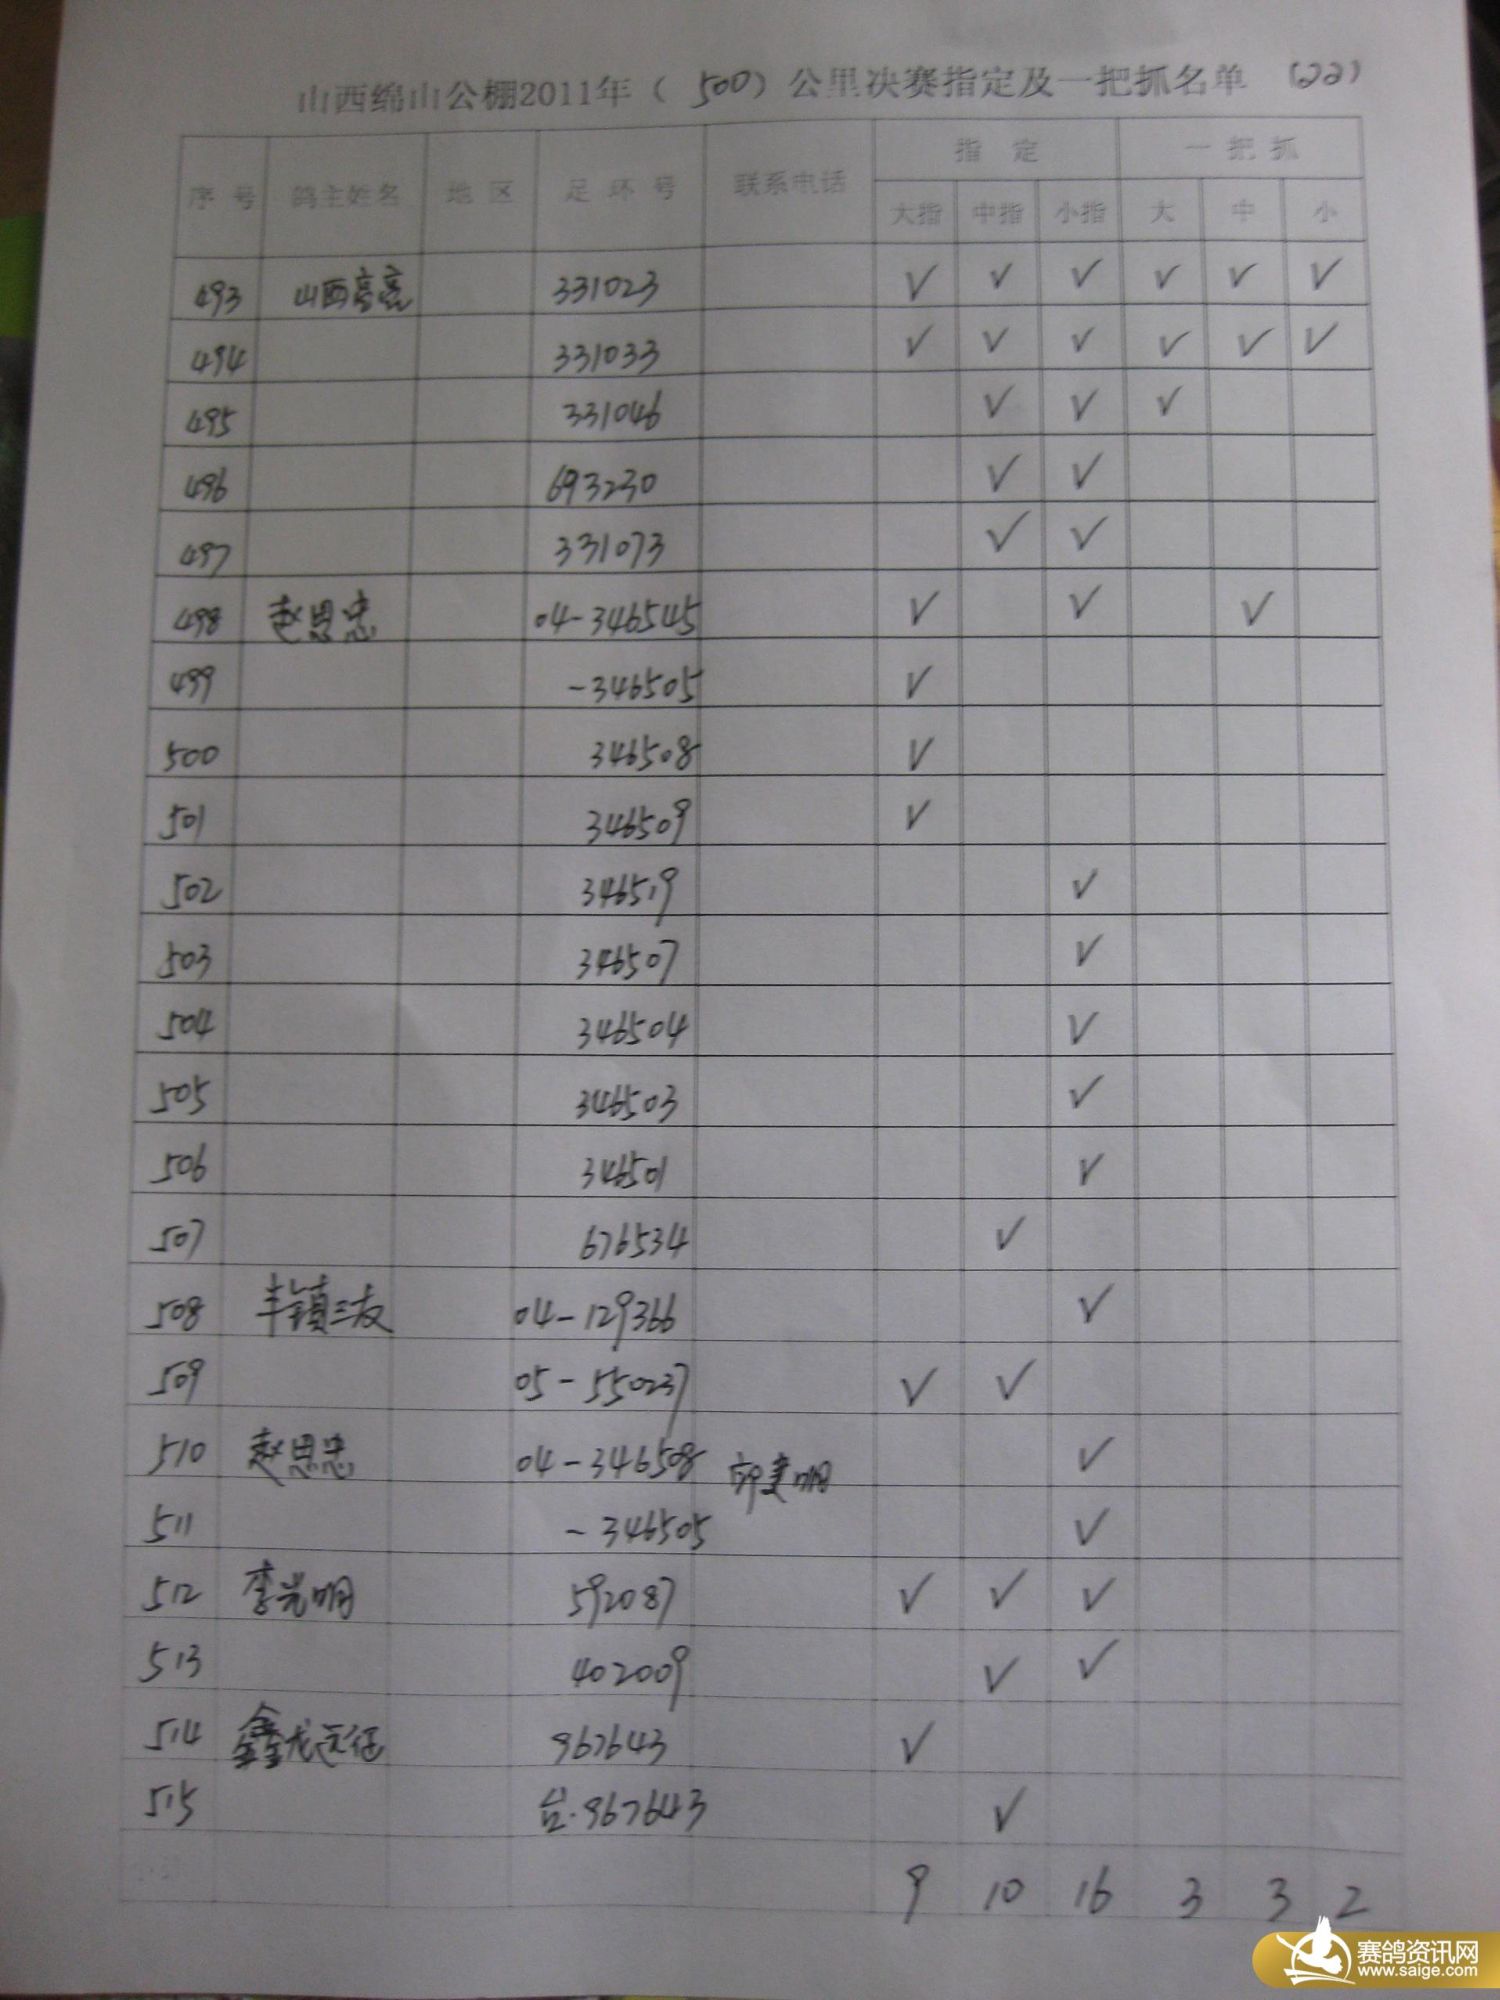 山西绵山公棚2011年（500）公里决赛指定及一把抓名单 (22)
指 定 一 把 抓
序 号 鸽主姓名 地 区 足 环 号 联系电话 大指 中指 小指 大 中 小
493 山西亮亮 331023 ✓ ✓ ✓ ✓ ✓ ✓
494 331033 ✓ ✓ ✓ ✓ ✓ ✓
495 331046 ✓ ✓ ✓
496 693230 ✓ ✓
497 331073 ✓ ✓
498 赵思忠 04-346545 ✓ ✓ ✓
499 -346505 ✓
500 346508 ✓
501 346509 ✓
502 346519 ✓
503 346507 ✓
504 346504 ✓
505 346503 ✓
506 346501 ✓
507 676534 ✓
508 丰镇三友 04-129366 ✓
509 05-550237 ✓ ✓
510 赵思忠 04-346508 ✓
511 -346505 ✓
512 李光明 592087 ✓ ✓ ✓
513 402009 ✓ ✓
514 鑫龙远征 967643 ✓
515 台.967643 ✓
9 10 16 3 3 2
赛鸽资讯网
www.saige.com